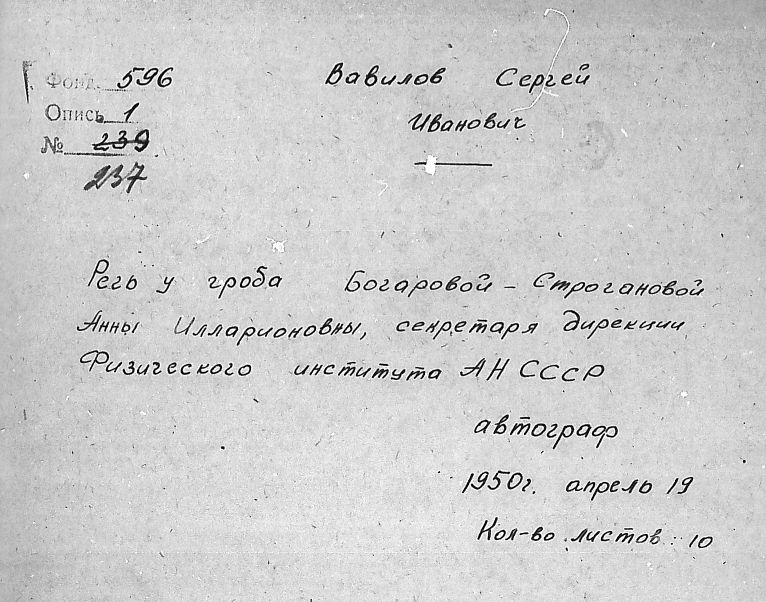 Фонд 596
Опись 1
№ 239
237
Вавилов Сергей
Иванович
Речь у гроба Бочаровой - Строгановой
Анны Илларионовны, секретаря дирекции
Физического института АН СССР
автограф
1950г. апрель 19
Кол-во листов: 10